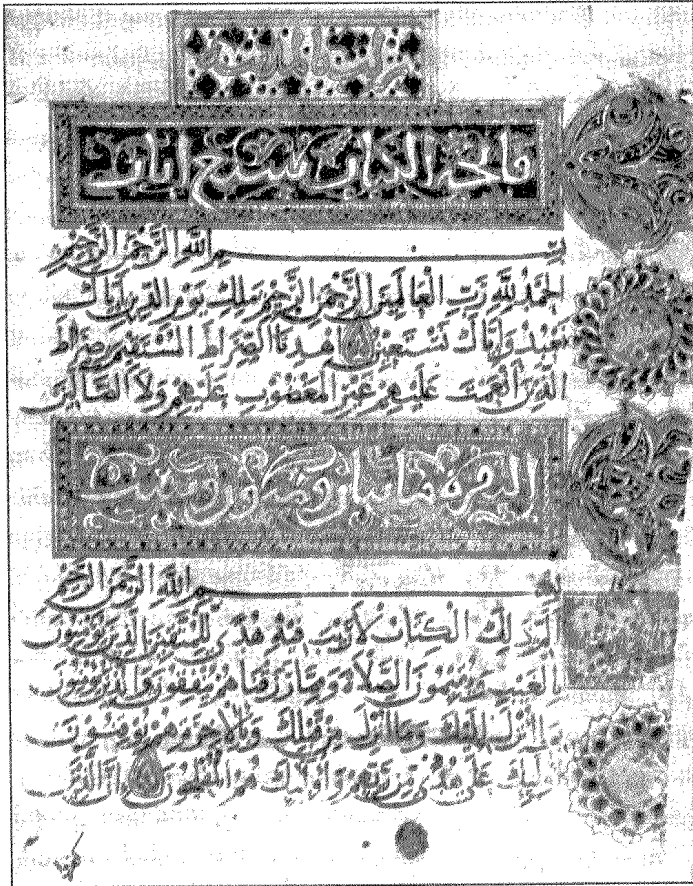 فاتحة الكتاب سبع ايات
بسم الله الرحمن الرحيم
الحمد لله رب العالمين الرحمن الرحيم ملك يوم الدين إياك
نعبد وإياك نستعين اهدنا الصراط المستقيم صراط
الذين أنعمت عليهم غير المغضوب عليهم ولا الضالين
البقرة مايتان وثمانون وست
بسم الله الرحمن الرحيم
الم ذلك الكتاب لا ريب فيه هدى للمتقين الذين يؤمنون
بالغيب ويقيمون الصلاة ومما رزقناهم ينفقون والذين يؤمنون
بما أنزل إليك وما أنزل من قبلك وبالآخرة هم يوقنون
أولئك على هدى من ربهم وأولئك هم المفلحون إن الذين